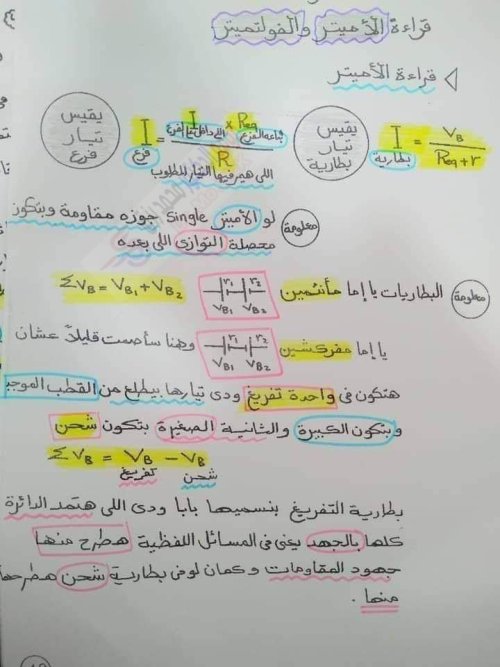 قراءة الأميتر والفولتميتر
قراءة الأميتر
I بطارية = VB / Req + r
يقيس تيار بطارية
I فرع = I اللي داخل على الفرع × Req بتاعة الفرع / R اللي همر فيها التيار المطلوب
يقيس تيار فرع
معلومة
لو الأميتر single جوزه مقاومة وبتكون
محصلة التوازى اللى بعده
معلومة
البطاريات يا إما مأنتمين
r1 r2
VB1 VB2
ΣVB = VB1 + VB2
يا إما مفركشين
r1 r2
VB1 VB2
وهنا سأصمت قليلاً عشان
هتكون فى واحدة تفريغ ودى تيارها بيطلع من القطب الموجب
وبتكون الكبيرة والثانية الصغيرة بتكون شحن
ΣVB = VB - VB
تفريغ شحن
بطارية التفريغ بنسميها بابا ودى اللى هتمد الدائرة
كلها بالجهد يعنى فى المسائل اللفظية هطرح منها
جهود المقاومات وكمان لو فى بطارية شحن هطرحها
منها .